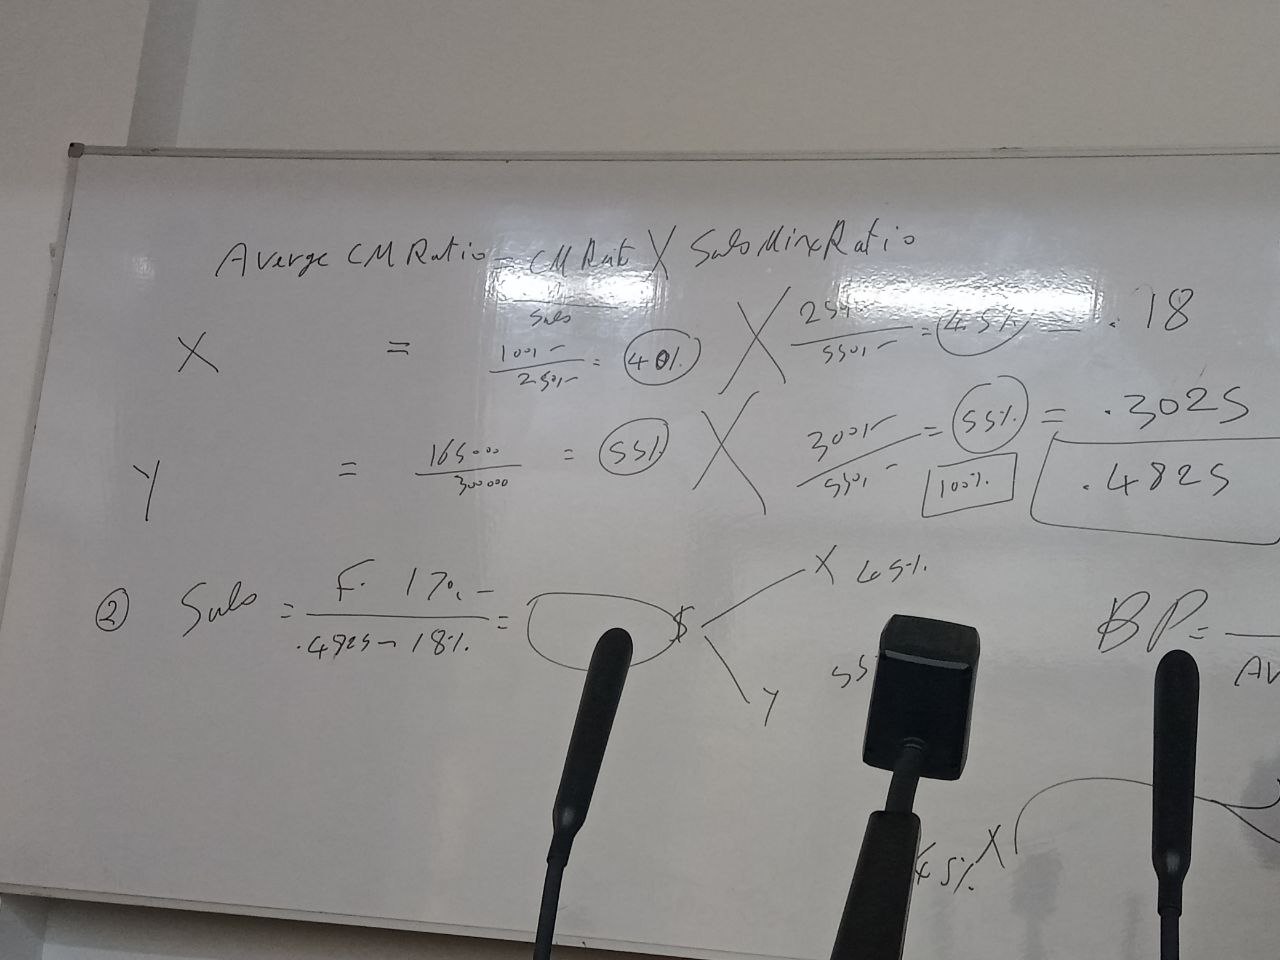 Averge CM Ratio = CM Rati X Sales Mix Ratio
Sales
X = 100,- / 250,- = 40% X 250,- / 550,- = 45% = .18
Y = 165000 / 300000 = 55% X 300,- / 550,- = 55% = .3025
100% .4825
② Sales = F. 170,- / .4825 - 18% = $ X 45%
Y 55
BP =
AV
45% X